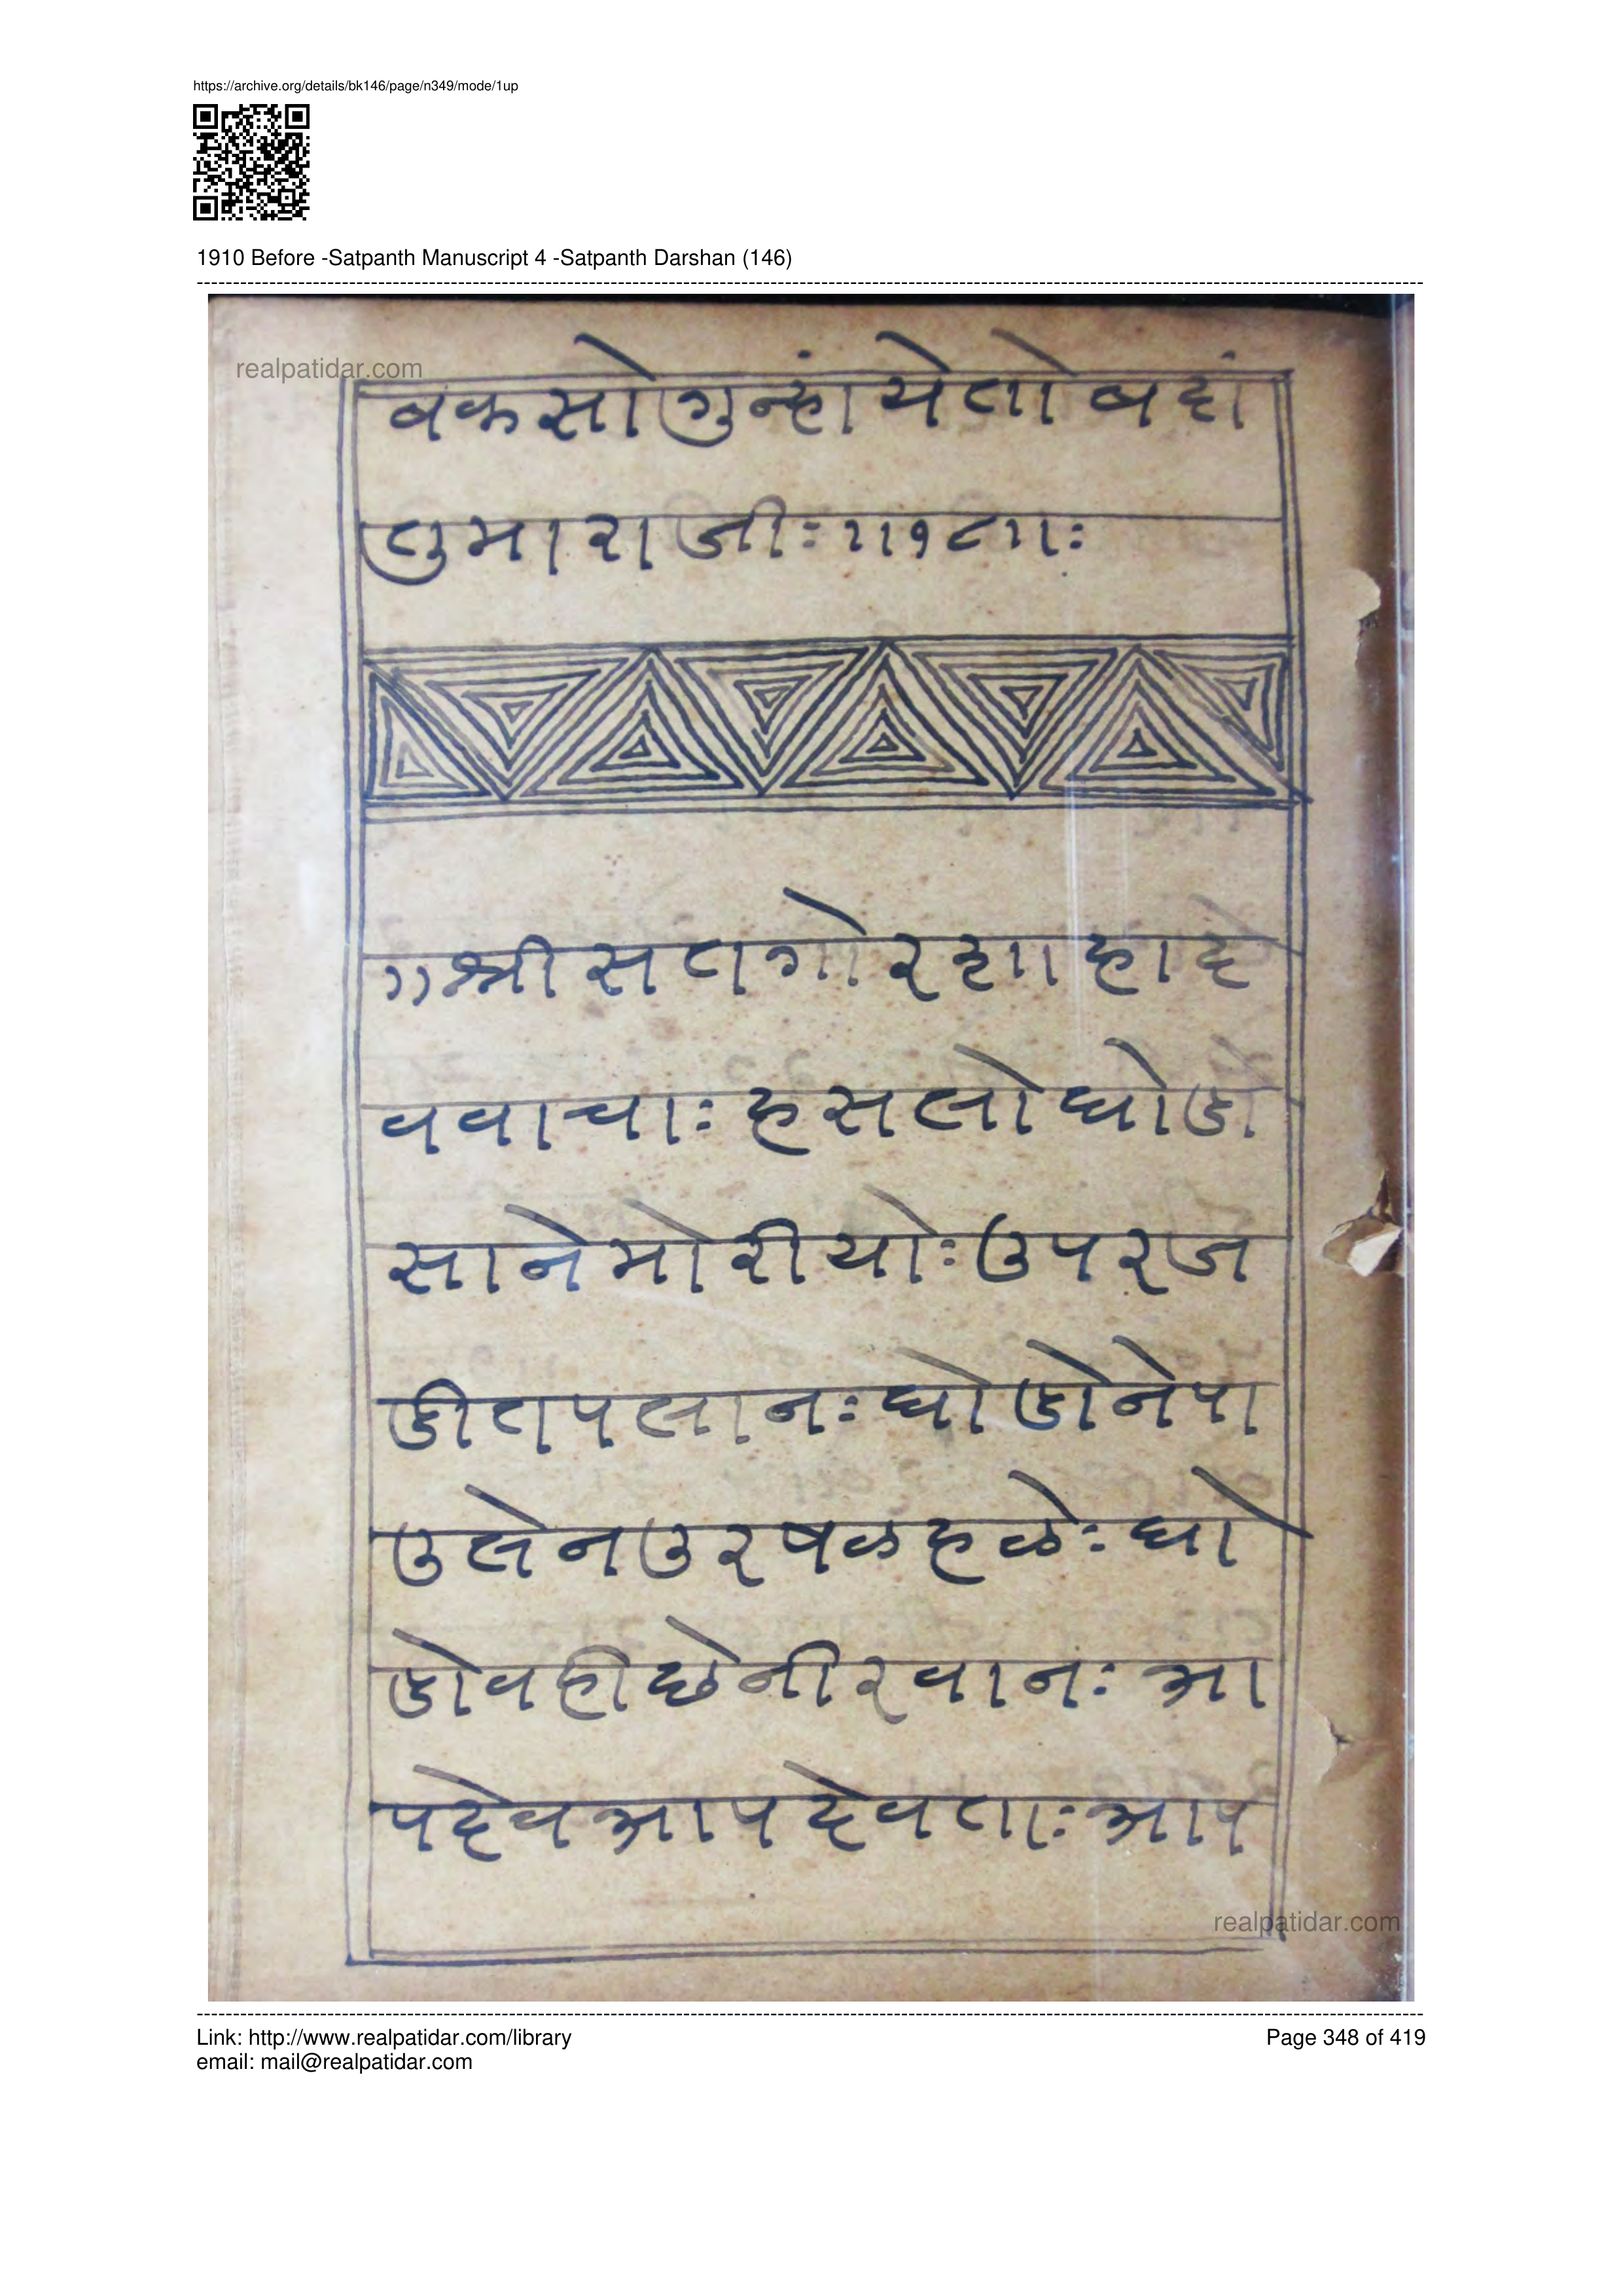 https://archive.org/details/bk146/page/n349/mode/1up
1910 Before -Satpanth Manuscript 4 -Satpanth Darshan (146)
realpatidar.com
बकसोगुन्हांयेतोबदां
तुमाराजीः॥१८॥ः
॥श्रीसतगोरशाहादे
ववाचाः हसलोघोडो
सानेमोरीयोः उपरज
डीतपलानः घोडोनेपा
उलेनउरषळहळेः घो
डोवहीछेनीरवानः आ
पदेवआपदेवताः आप
realpatidar.com
Link: http://www.realpatidar.com/library
Page 348 of 419
email: mail@realpatidar.com